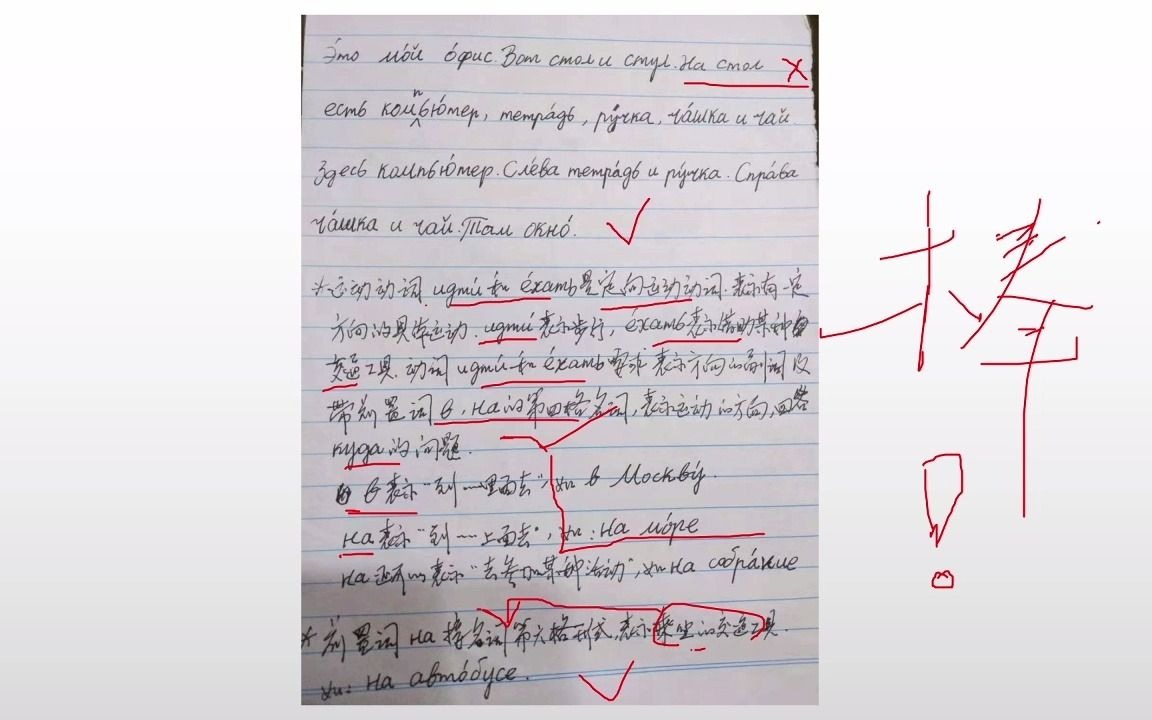 Э́то мой о́фис. Вот стол и стул. На стол
есть компью́тер, тетра́дь, ру́чка, ча́шка и чай
Здесь компью́тер. Сле́ва тетра́дь и ру́чка. Спра́ва
ча́шка и чай. Там окно́.
*运动动词 идти́ 和 е́хать 是定向运动动词. 表示有一定
方向的具体运动. идти́ 表示步行, е́хать 表示借助某种
交通工具. 动词 идти́ 和 е́хать 要求表示方向的副词及
带前置词 в, на 的第四格名词, 表示运动的方向, 回答
куда 的问题.
в 表示 "到……里面去", 如 в Москву́.
на 表示 "到……上面去", 如: на мо́ре
на 还可以表示 "去参加某种活动", 如 на собра́ние
*前置词 на 接名词第六格形式, 表示乘坐的交通工具.
如: на авто́бусе.
棒!